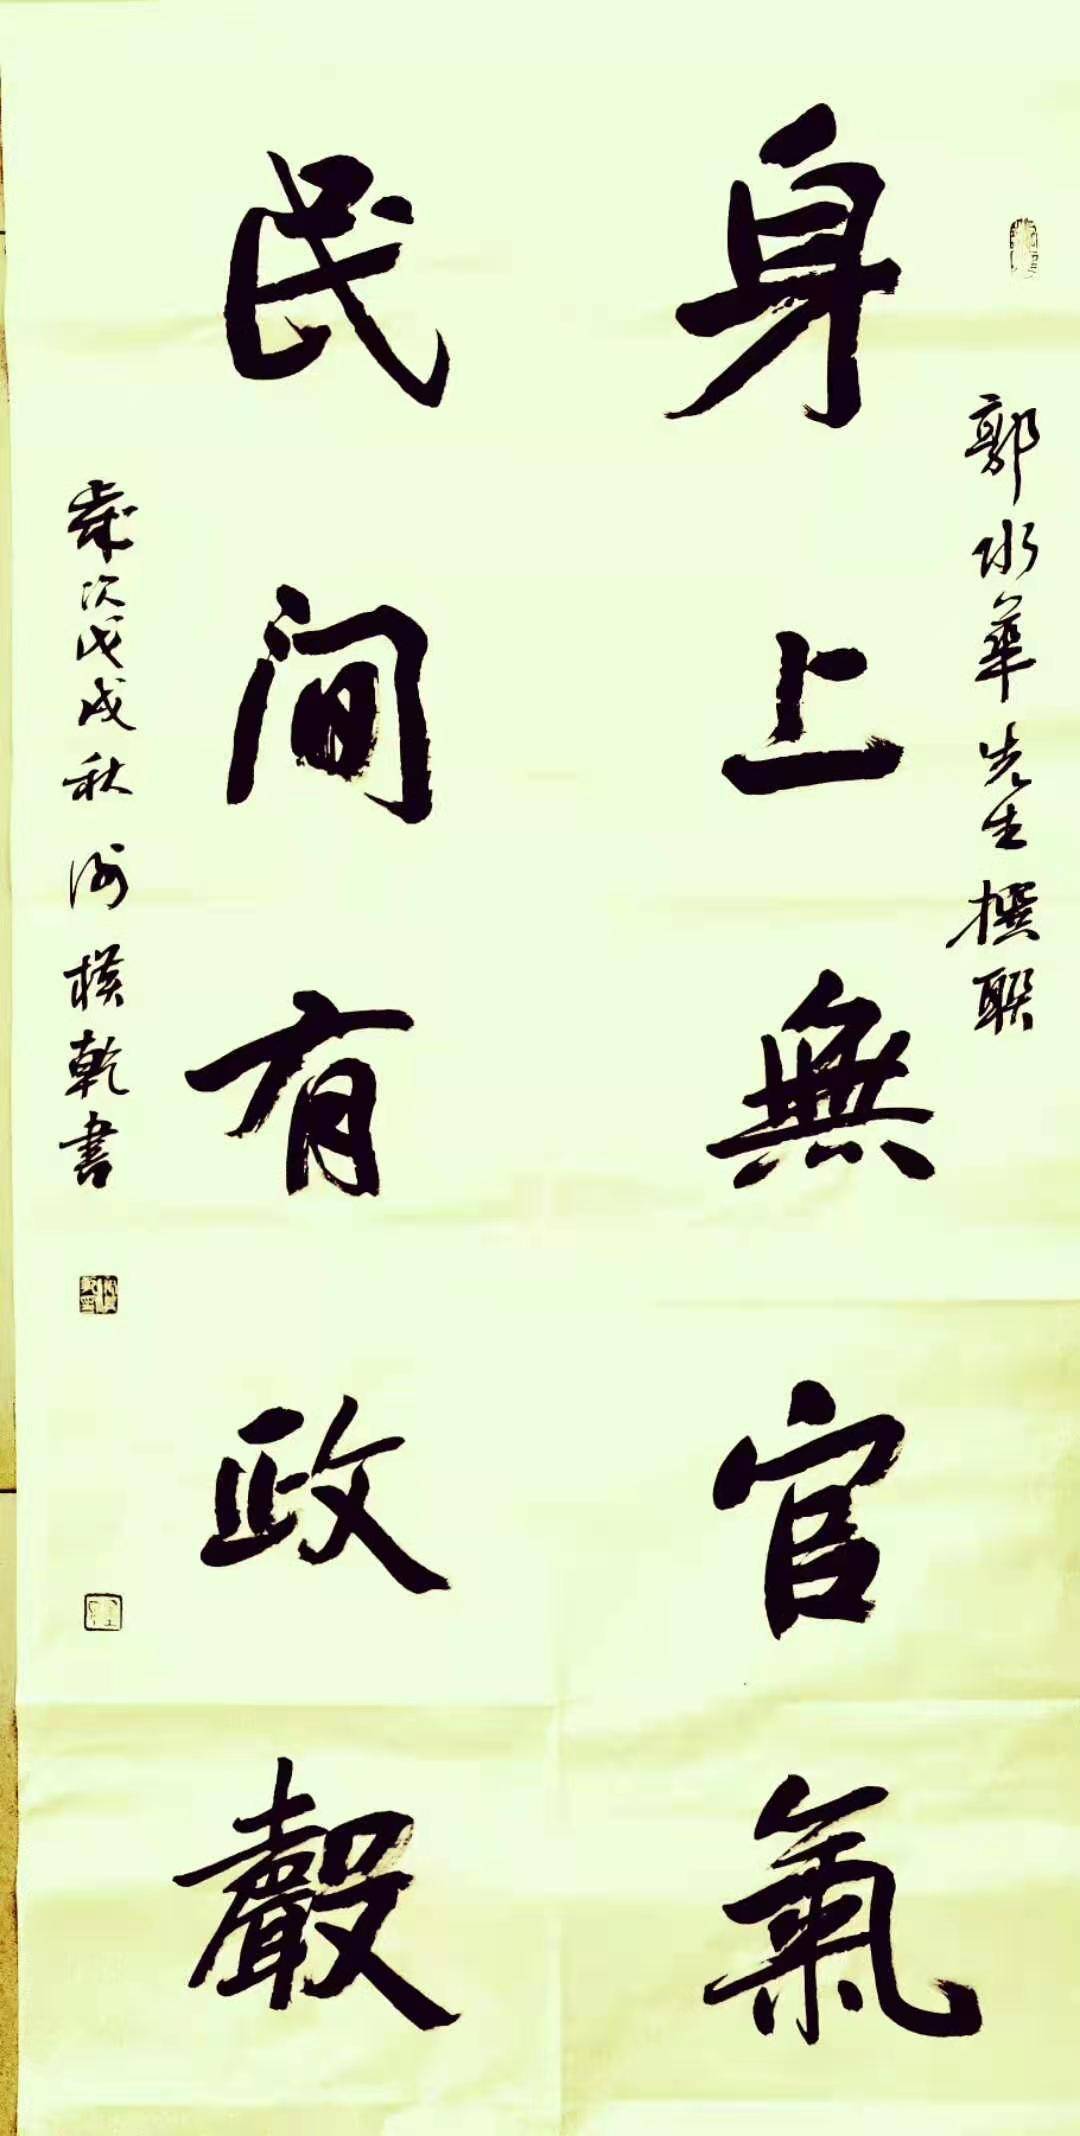 郭水華先生撰联
身上無官氣
民间有政聲
歲次戊戌秋 樸乾書